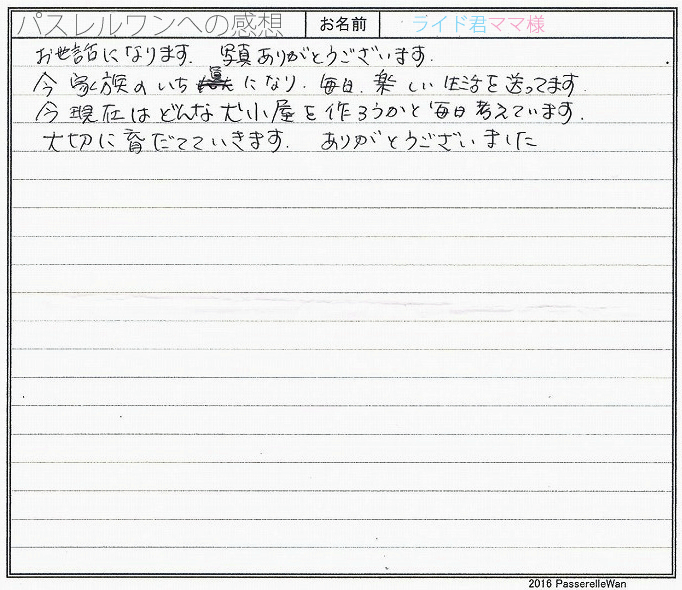 パスレルワンへの感想 お名前 ライド君ママ様
お世話になります. 写真ありがとうございます.
今家族のいち員になり. 毎日. 楽しい生活を送ってます.
今現在はどんな犬小屋を作ろうかと毎日考えています.
大切に育だてていきます. ありがとうございました
2016 PasserelleWan